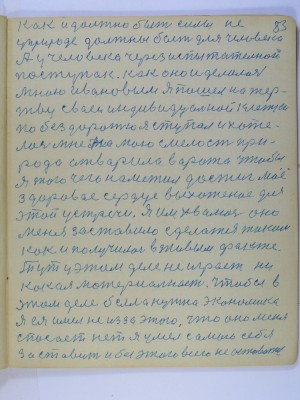 83
как и должно быть силы не
природе должны быть для человека
А у человека через испытательной
поступок. как оно и делалось
мною Ивановым Я пошел на жер-
тву своей индивидуальной
по бездорожью я ступал и хоте-
лось мне моего смелост при-
рода открыла ворота чтобы
Я того чего наметил достиг моё
здоровое сердце выхоженое для
этой встречи. Я им хвалюсь оно
меня заставило сделатся таким
как и получился в живым факте
Тут у этом деле не играет ни
какая материальност. чтобы в
этом деле была нужна экономика
Я ея имел не из за этого, что оно меня
спасает нет я умел самого себя
заставит и без этого всего не